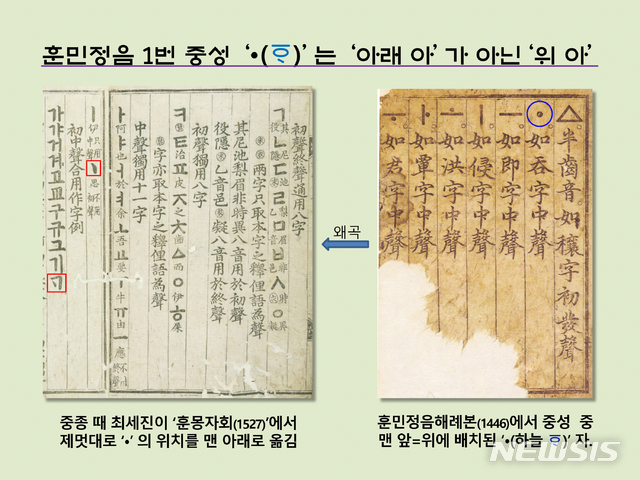 훈민정음 1번 중성 ‘•(ᄒᆞ)’ 는 ‘아래 아’ 가 아닌 ‘위 아’
初聲終聲通用八字
ㄱ其役 ㄴ尼隱 ㄷ池 ㄹ梨乙 ㅁ眉音 ㅂ非邑 ㅅ時 ㆁ異
兩字只取本字之釋俚語爲聲
其尼池梨眉非時異八音用於初聲
役隱乙音邑凝八音用於終聲
初聲獨用八字
ㅋ ㅌ治 ㅍ皮 ㅈ之 ㅊ齒 ㅿ而 ㅇ伊 ㅎ屎
字亦取本字之釋俚語爲聲
中聲獨用十一字
ㅏ阿 ㅑ也 ㅓ於 ㅕ余 ㅗ吾 ㅛ要 ㅜ牛 ㅠ由 ㅡ應
ㅣ伊只用中聲 ㆍ思不用初聲
初中聲合用作字例
가갸거겨고교구규그기ᄀᆞ
왜곡
△半齒音如穰字初發聲
• 如呑字中聲
ㅡ 如即字中聲
ㅣ 如侵字中聲
ㅗ 如洪字中聲
ㅏ 如覃字中聲
ㅜ 如君字中聲
중종 때 최세진이 ‘훈몽자회(1527)’에서
제멋대로 ‘•’ 의 위치를 맨 아래로 옮김
훈민정음해례본(1446)에서 중성 중
맨 앞=위에 배치된 ‘•(하늘 ᄒᆞ)’ 자.
NEWSIS